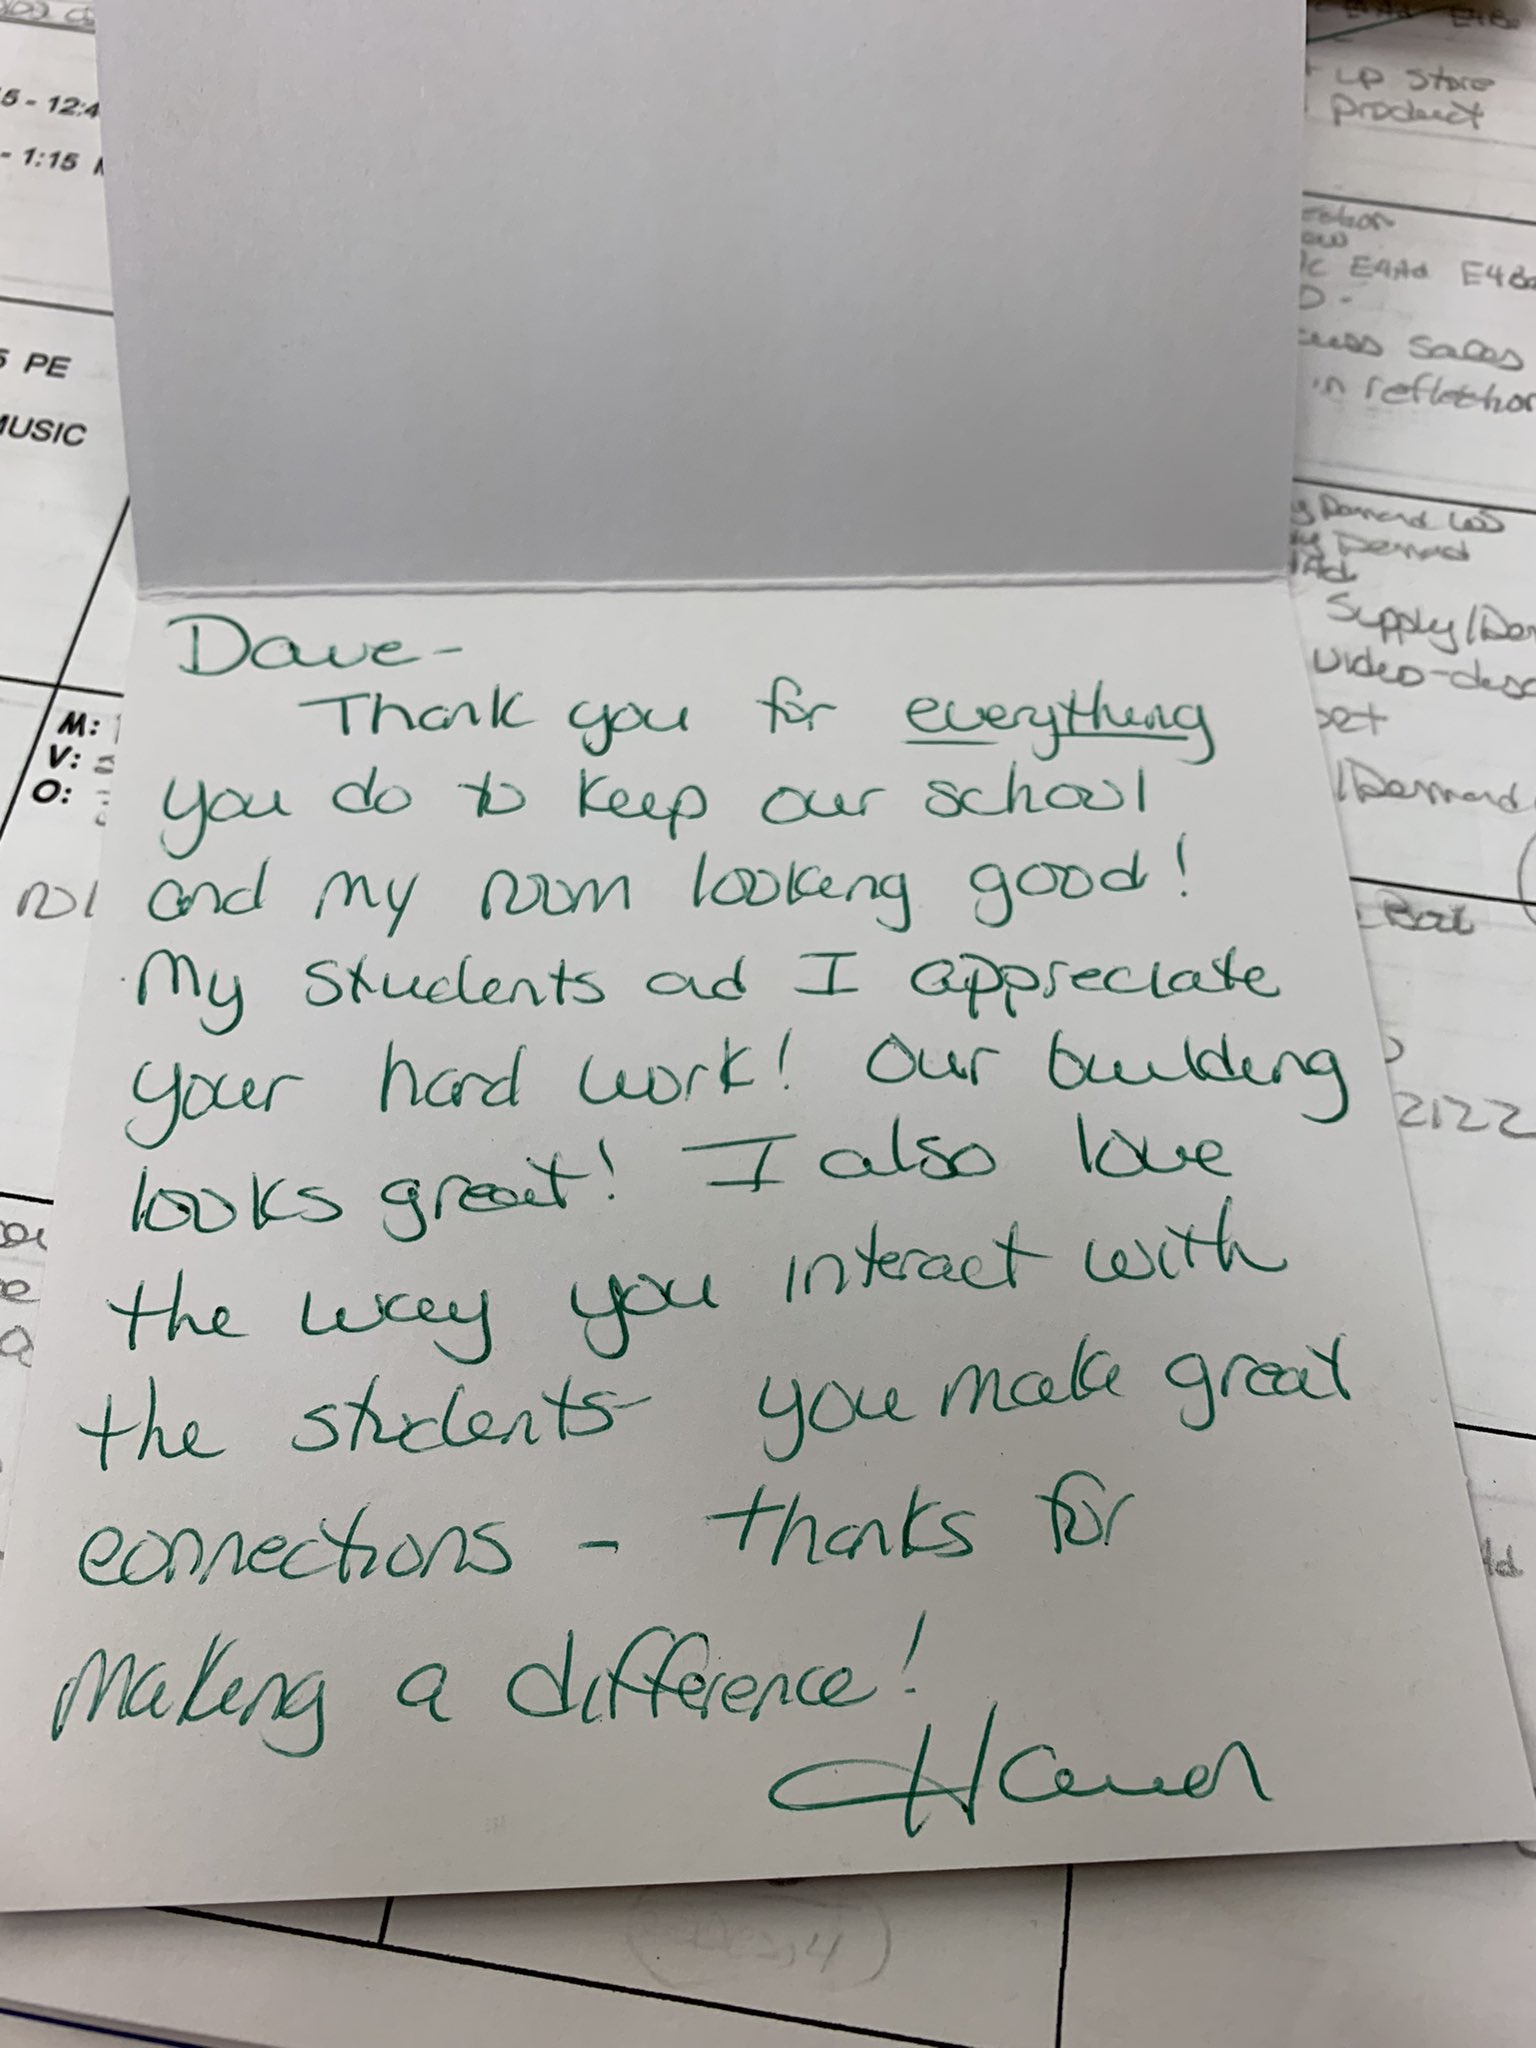 5 - 12:4
- 1:15
PE
MUSIC
M:
V:
O:
up Store
Product
E4Ad E4Ba
Sales
in reflection
Demand
Demand
Supply/Dem
video-disc
/Demand
Bai
2122
Dave-
Thank you for everything
you do to keep our school
and my room looking good!
My students ad I appreciate
your hard work! Our building
looks great! I also love
the way you interact with
the students- you make great
connections - thanks for
making a difference!